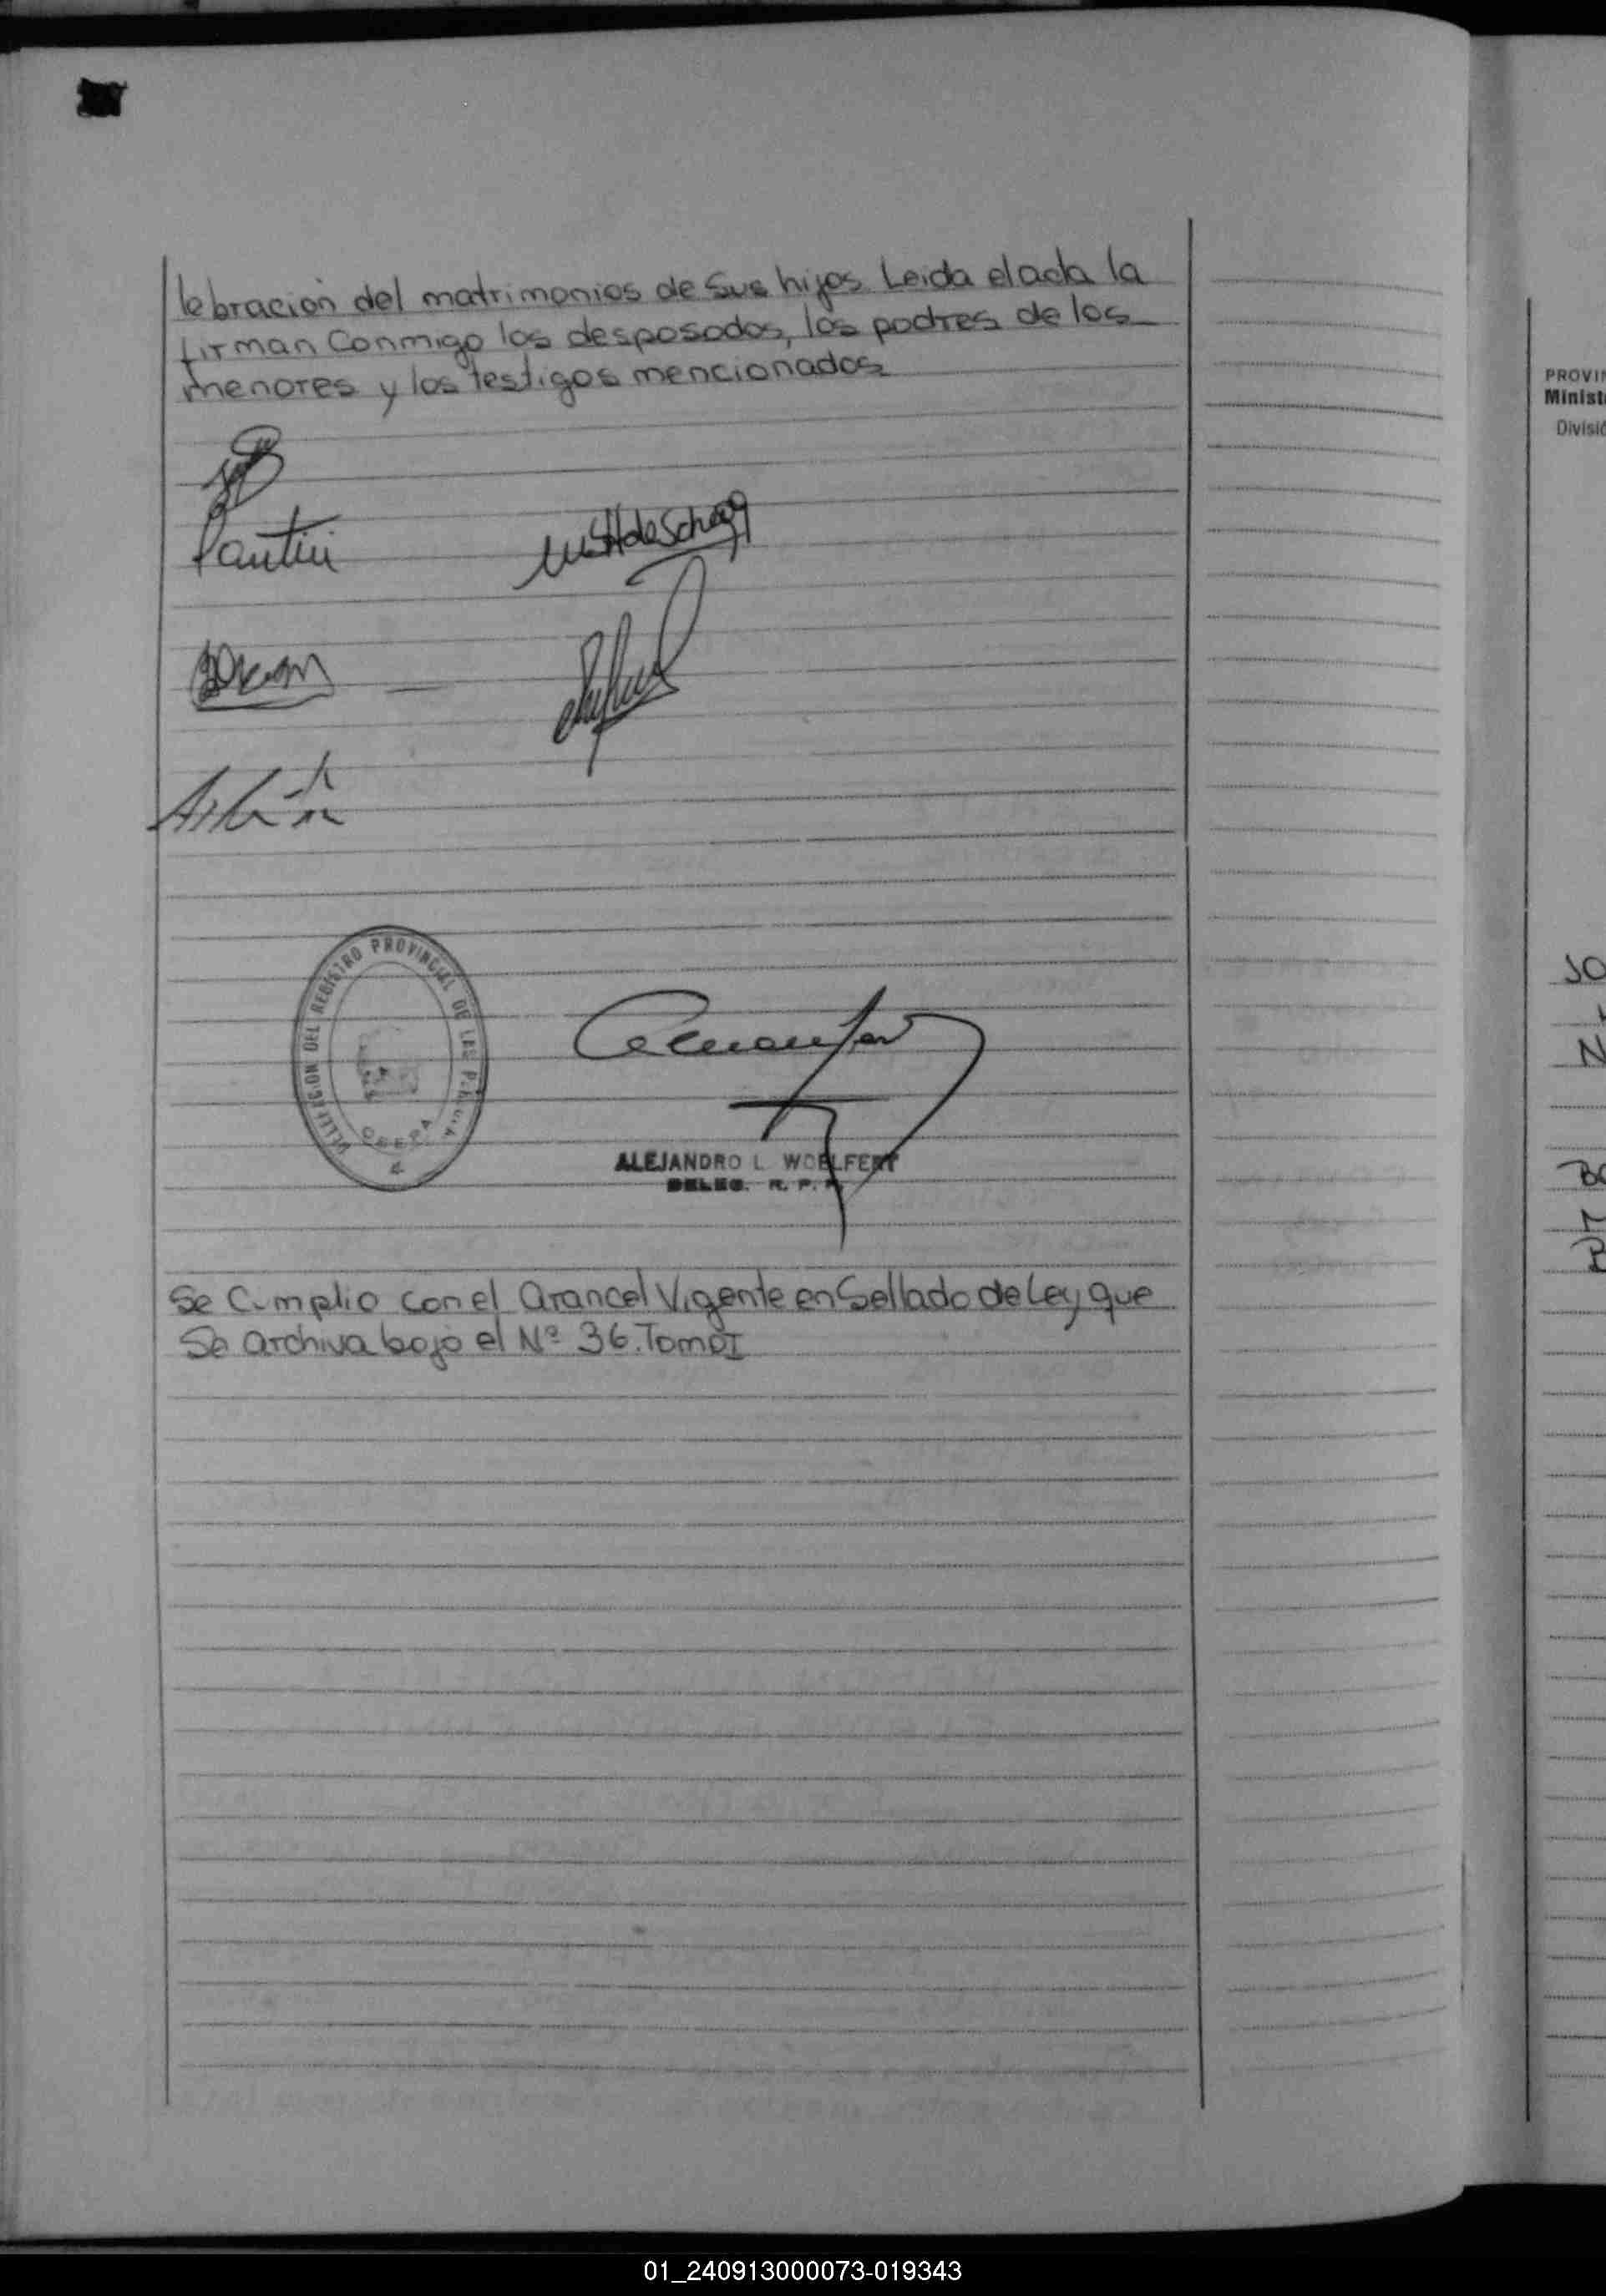 lebración del matrimonios de sus hijos. Leida el acta la
firman Conmigo los desposados, los padres de los
menores y los testigos mencionados
DEL REGISTRO PROVINCIAL DE LAS
ALEJANDRO L. WOELFERT
DELEG. R. P.
Se Cumplio con el arancel Vigente en Sellado de Ley que
Se archiva bajo el Nº 36. Tomo I
PROVIN
Minist
Divisió
SO
N
01_240913000073-019343